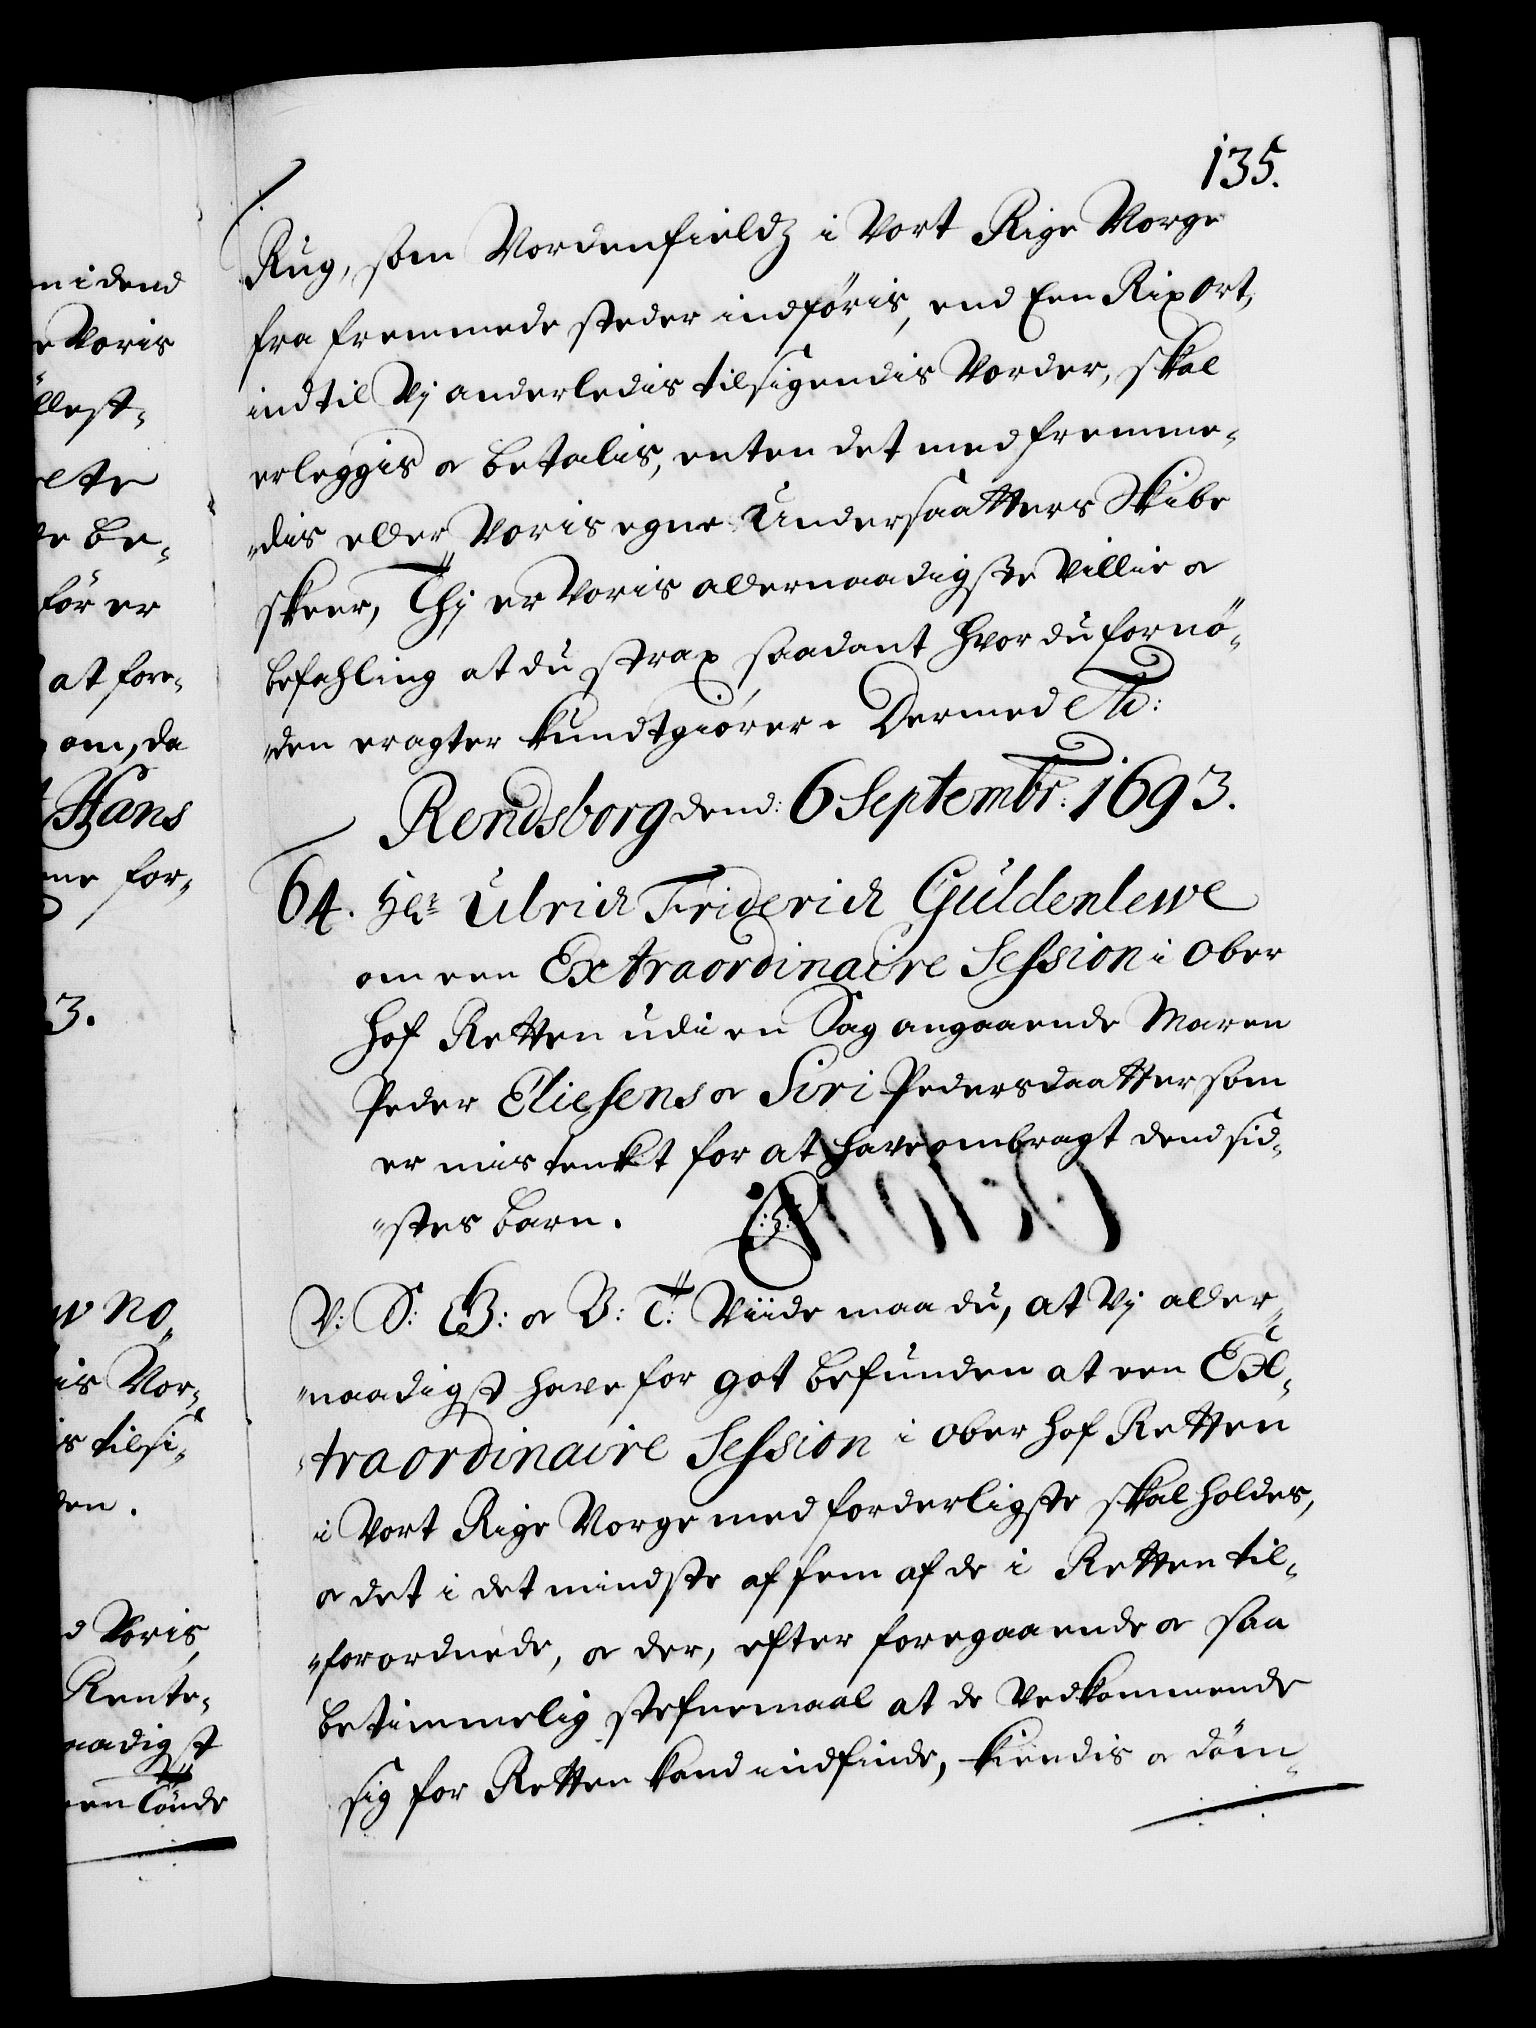 135.
Rug, som Nordenfieldz i Vort Rige Norge
fra fremmede steder indføris, end Een Rix Ort,
indtil Vj anderledis tilsigendis Vorder, skal
erleggis oc betalis, enten det med fremme-
dis eller Voris egne Undersaatters Skibe
skeer, Thj er Voris allernaadigste Villie oc
befahling at du strax saadant hvor du fornö-
den eragter kundtgiörer. Dermed Etc:
Rendsborg dend: 6 Septembr: 1693.
64. Hr: Ulrich Friderich Guldenlewe
om een Extraordinaire Session i Ober
hof Retten udi en Sag angaaende Maren
Peder Eliesens oc Siri Pedersdaatter som
er mistenkt for at have ombragt dend sid-
stes barn.
V: S: G: oc B: T: Viide maa du, at Vj aller-
naadigst have for got befunden at een Ex-
traordinaire Session i Ober hof Retten
i Vort Rige Norge med forderligste skal holdes,
oc det i det mindste af fem af de i Retten til-
forordnede, oc der, efter foregaaende oc saa
betimmelig stefnemaal at de Vedkommende
sig for Retten kand indfinde, kiendis oc döm-
n i dend
e Voris
llest-
ette
e be-
för er
at fore-
om, da
Hans
ne for-
3.
w No
is Nor-
s tilsi-
den.
d Voris
Rente-
aadigst
en Tönde